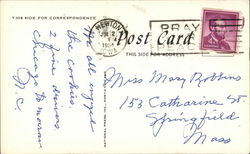 THIS SIDE FOR CORRESPONDENCE
Post Card
THIS SIDE FOR ADDRESS
PRAY
We all enjoyed
the cookies.
2 fine drivers
Chicago tomorrow
N.C.
Miss Mary Robbins
153 Catharine St
Springfield
Mass